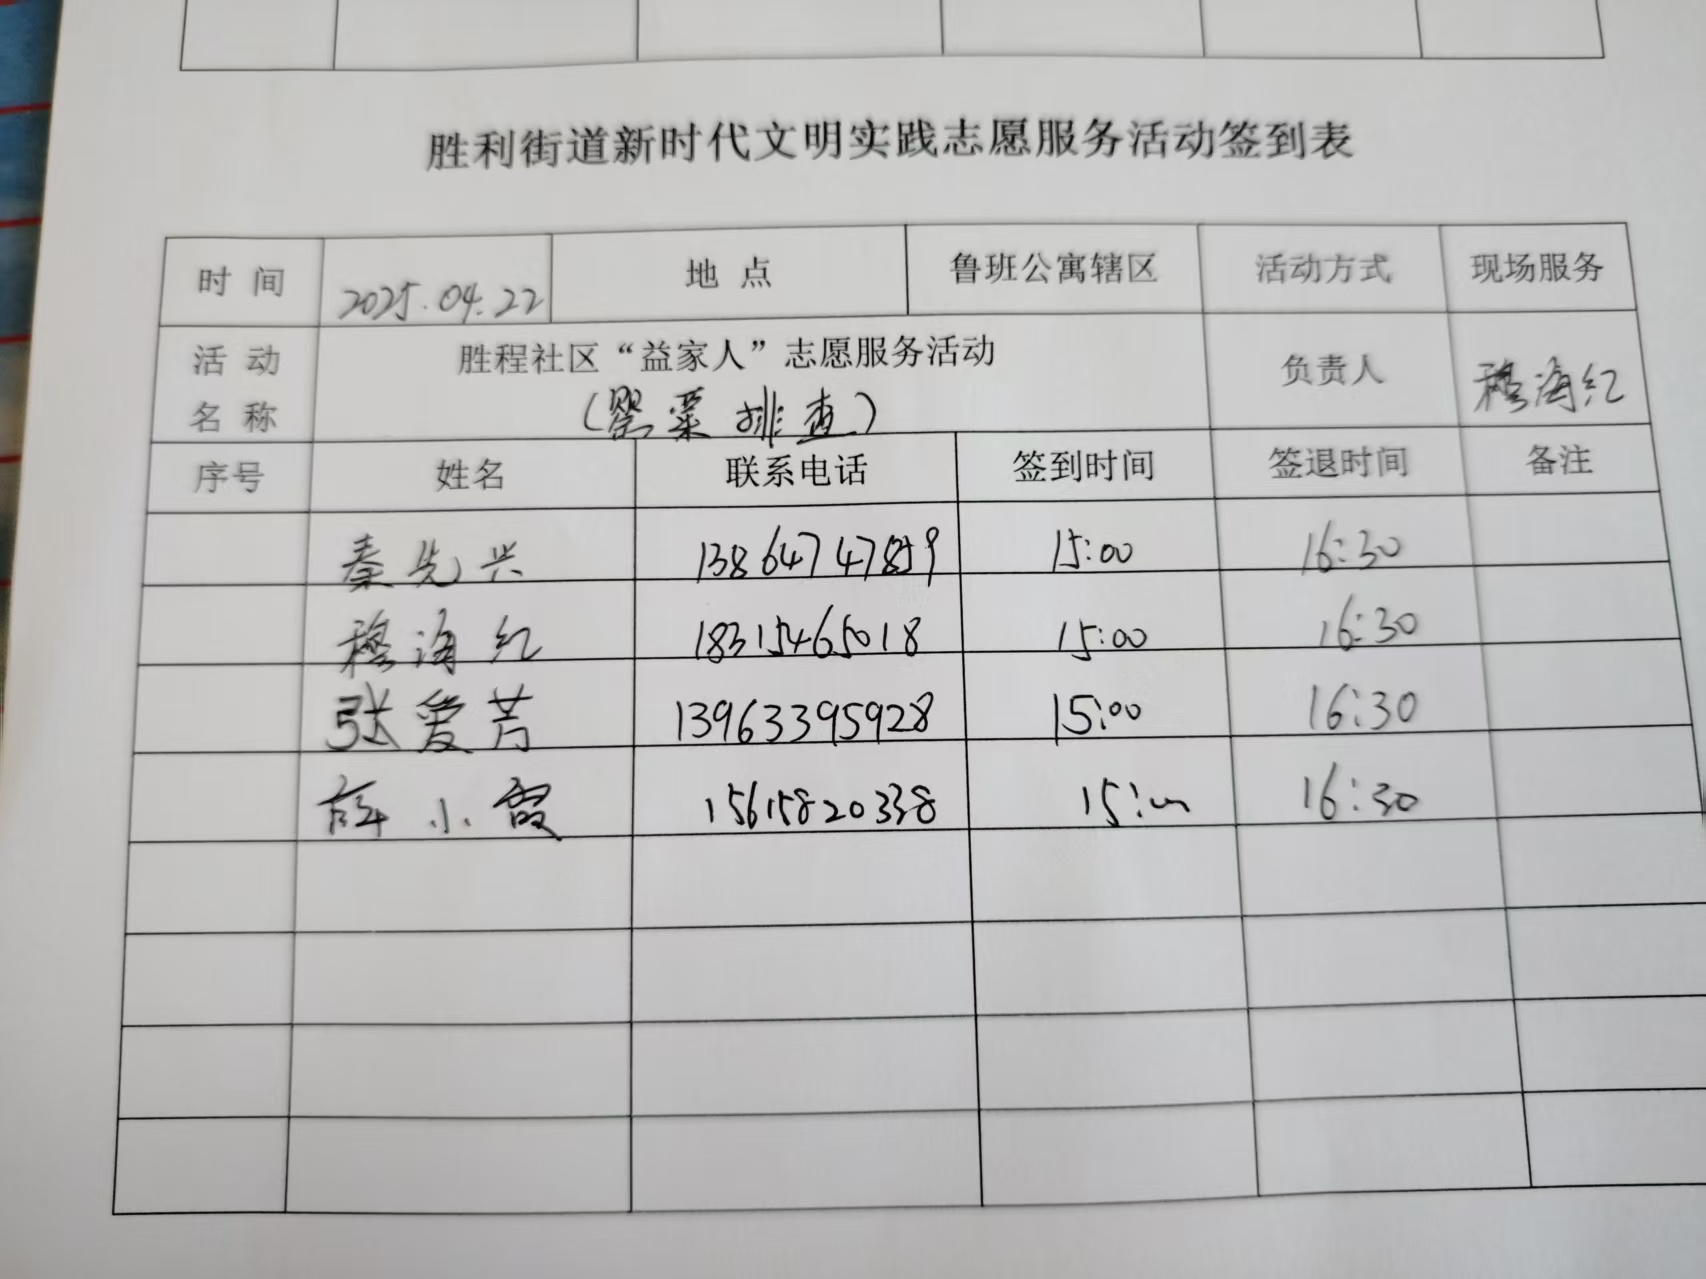 胜利街道新时代文明实践志愿服务活动签到表
时 间 2025.04.22 地 点 鲁班公寓辖区 活动方式 现场服务
活 动 名 称 胜程社区“益家人”志愿服务活动 负责人 穆海红
(罂粟排查)
序号 姓名 联系电话 签到时间 签退时间 备注
秦先兴 13864747859 15:00 16:30
穆海红 18315465018 15:00 16:30
张爱芳 13963395928 15:00 16:30
薛小霞 15615820338 15:00 16:30